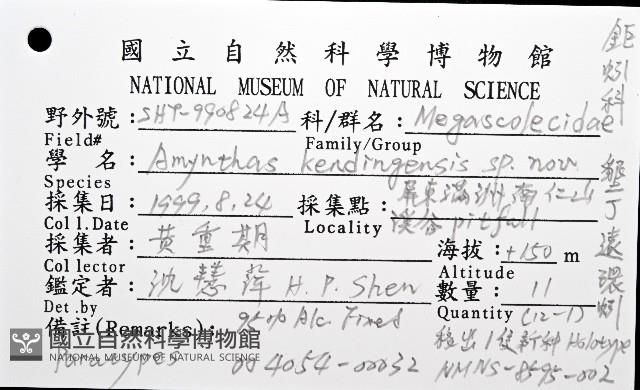 國立自然科學博物館
NATIONAL MUSEUM OF NATURAL SCIENCE
野外號: SHT-990824A 科/群名: Megascolecidae
Field# Family/Group
鉅蚓科
學 名: Amynthas kendingensis sp. nov.
Species
墾丁遠環蚓
採集日: 1999.8.24 採集點: 屏東滿洲南仁山
溪谷 pitfall
Coll.Date Locality
採集者: 黃重期 海拔: +150 m
Collector Altitude
鑑定者: 沈慧萍 H. P. Shen 數量: 11
Det.by Quantity (12-1)
備註(Remarks): 95% Alc. Fixed
檢出1隻新種 Holotype
NMNS-8595-002
Paratype 004054-00032
國立自然科學博物館
NATIONAL MUSEUM OF NATURAL SCIENCE